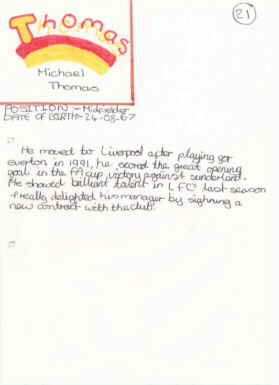 21
Thomas
Michael
Thomas
POSITION - Midfielder
DATE OF BIRTH - 24-08-67
He moved to Liverpool after playing for
everton in 1991, he scored the great opening
goal in the FA cup victory against sunderland.
He showed brilliant talent in LFC last season
& really delighted his manager by sighning a
new contract with the club.